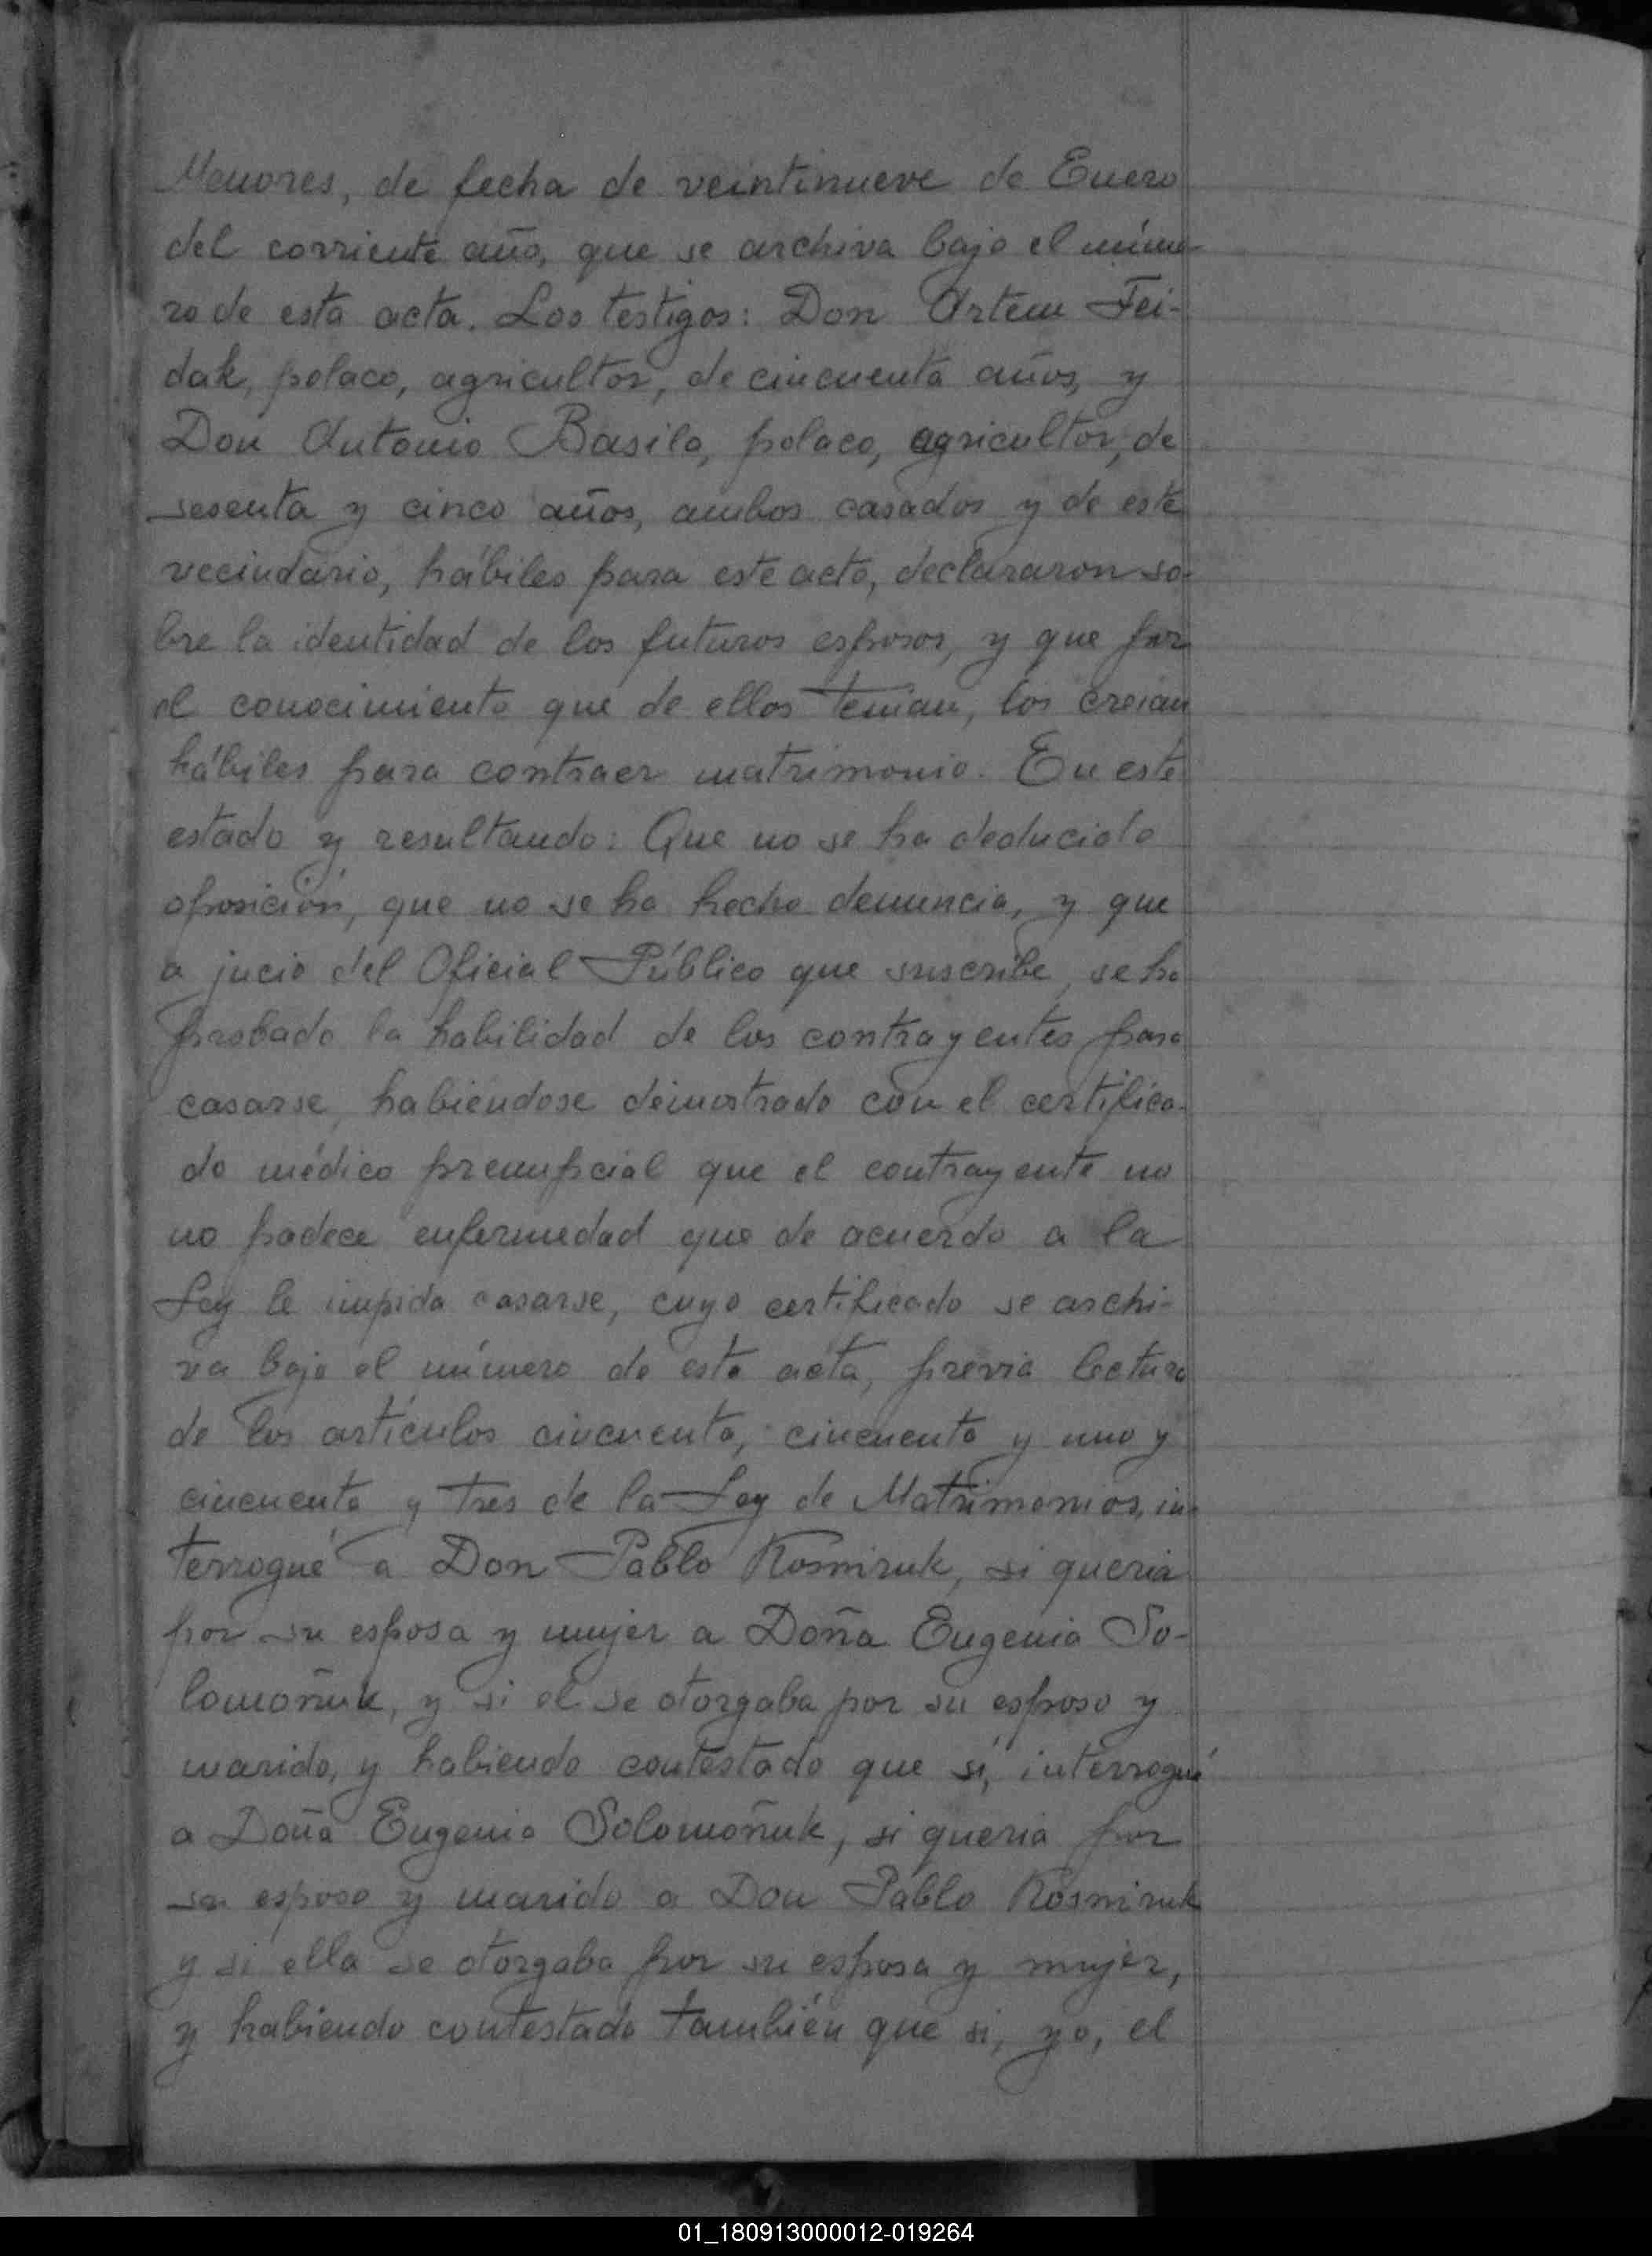 Menores, de fecha de veintinueve de Enero
del corriente año, que se archiva bajo el núme-
ro de esta acta. Los testigos: Don Artem Fei-
dak, polaco, agricultor, de cincuenta años, y
Don Antonio Basilo, polaco, agricultor, de
sesenta y cinco años, ambos casados y de este
vecindario, hábiles para este acto, declararon so-
bre la identidad de los futuros esposos, y que por
el conocimiento que de ellos tenian, los creian
hábiles para contraer matrimonio. En este
estado y resultando: Que no se ha deducido
oposición, que no se ha hecho denuncia, y que
a jucio del Oficial Público que suscribe, se ha
probado la habilidad de los contrayentes para
casarse, habiendose demostrado con el certifica-
do médico prenupcial que el contrayente no
no padece enfermedad que de acuerdo a la
Ley le impida casarse, cuyo certificado se archi-
va bajo el número de esta acta, previa lectura
de los artículos cincuenta, cincuenta y uno y
cincuenta y tres de la Ley de Matrimonios, in-
terrogué a Don Pablo Kosmiruk, si queria
por su esposa y mujer a Doña Eugenia So-
lomoñuk, y si el se otorgaba por su esposo y
marido, y habiendo contestado que sí, interrogué
a Doña Eugenia Solomoñuk, si queria por
su esposo y marido a Don Pablo Kosmiruk
y si ella se otorgaba por su esposa y mujer,
y habiendo contestado también que si, yo, el
01_180913000012-019264